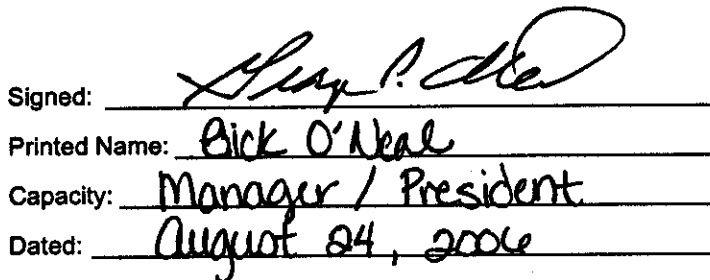 Signed:
Printed Name: Bick O'Neal
Capacity: Manager / President
Dated: August 24, 2006